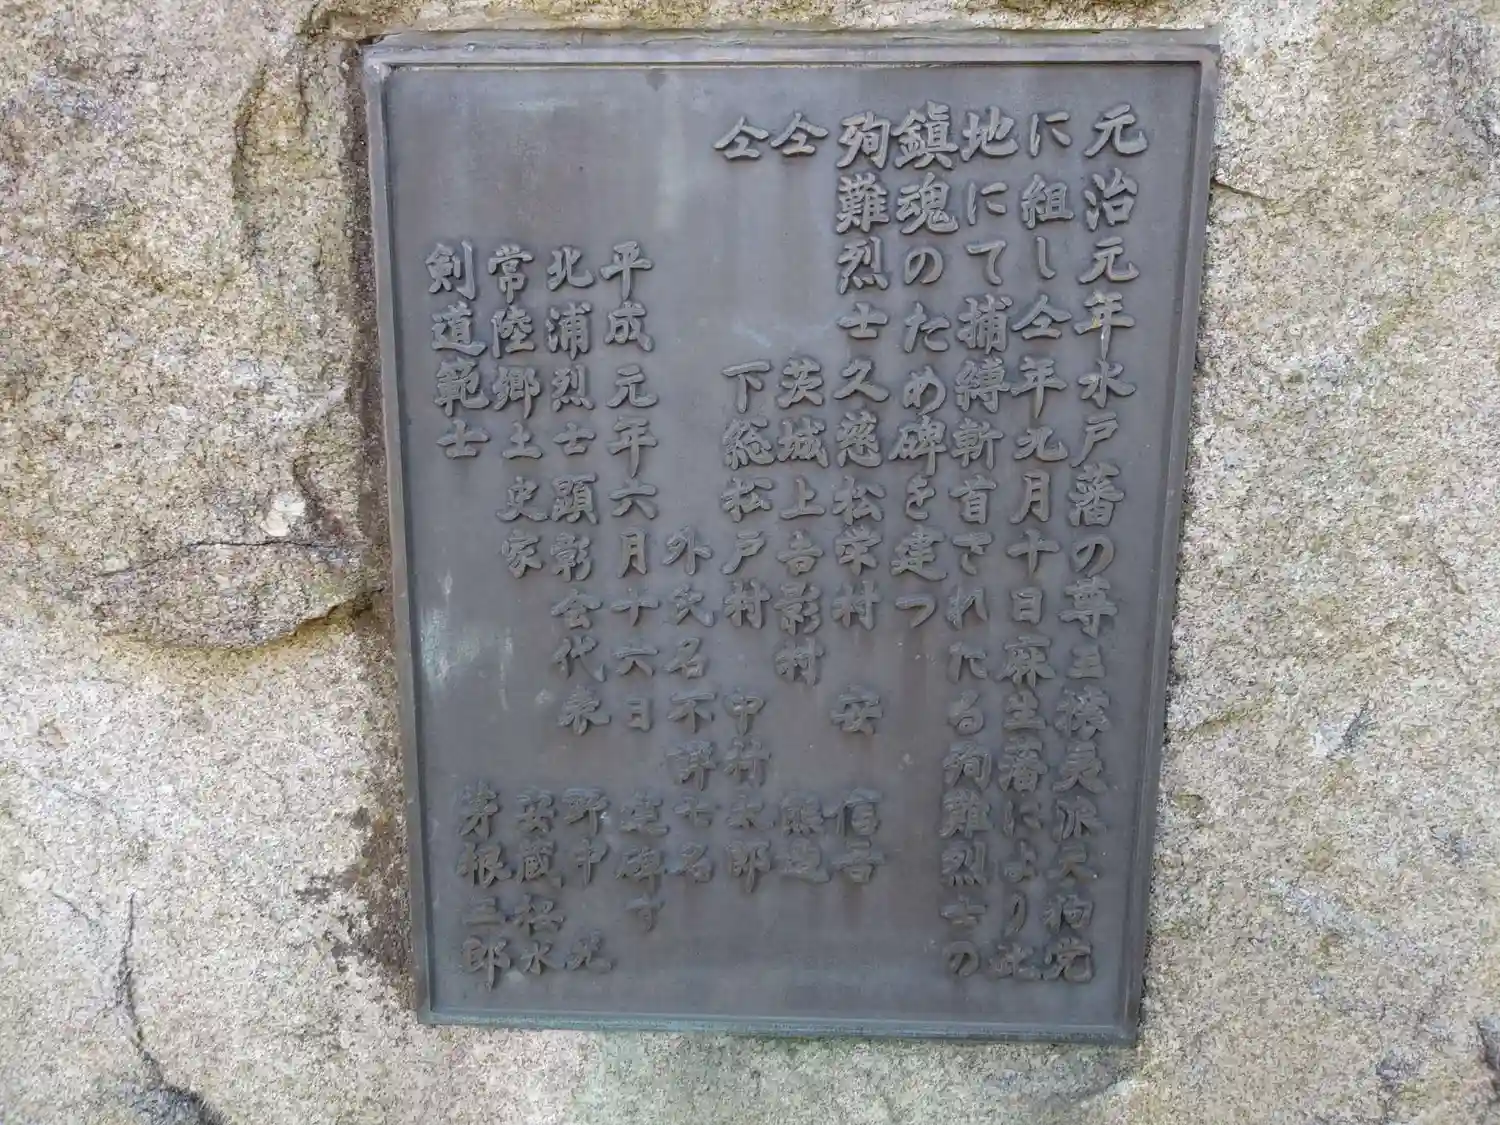 元治元年水戸藩の尊王攘夷派天狗党
に組し仝年九月十日麻生藩により此
地にて捕縛斬首されたる殉難烈士の
鎮魂のため碑を建つ
殉難烈士久慈松栄村 安 信吾
仝 茨城上吉影村 熊造
仝 下総松戸村 中村太郎
外氏名不詳七名
平成元年六月十六日 建碑す
北浦烈士顕彰会代表 野中
常陸郷土史家 安蔵松水
剣道範士 茅根三郎